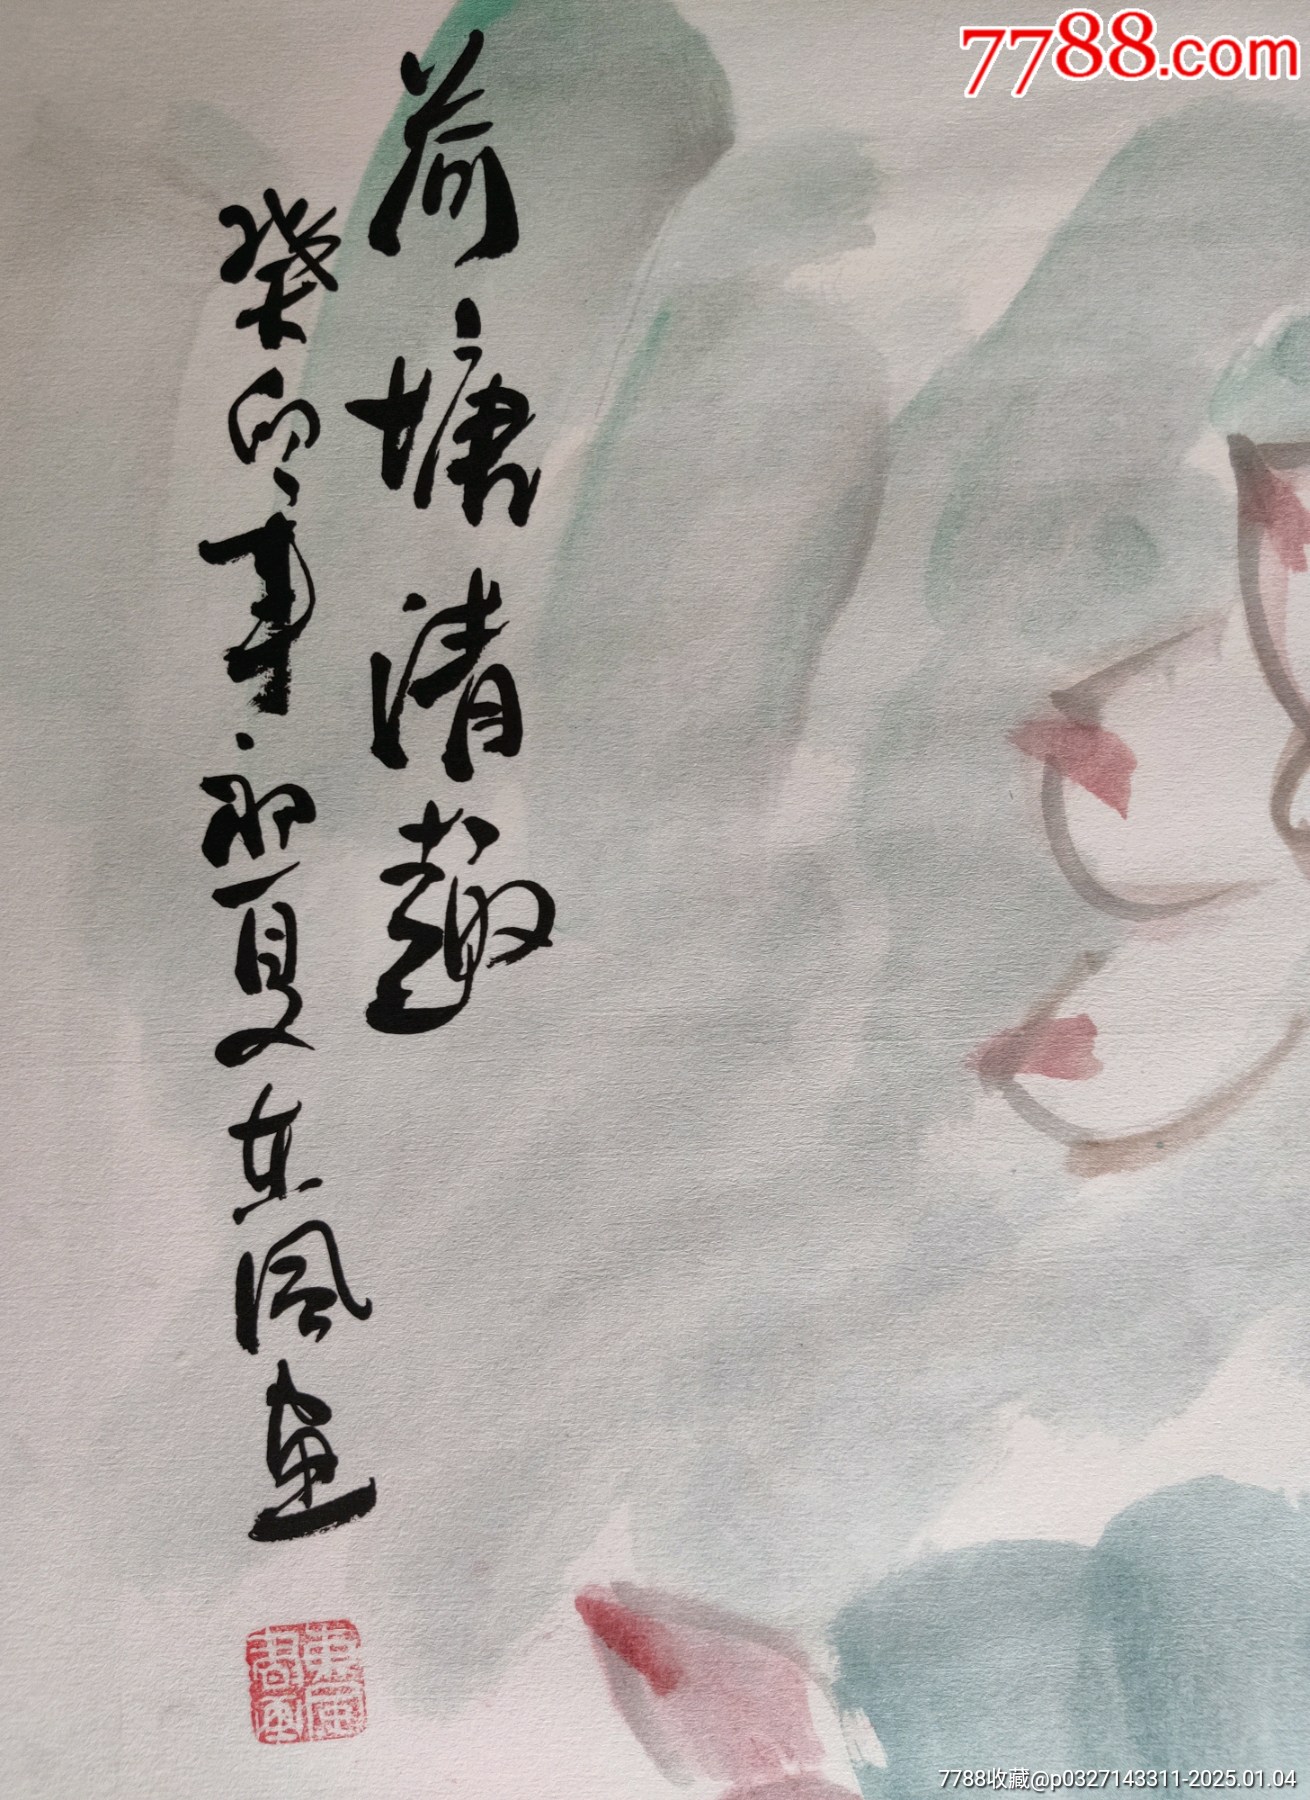 7788.com
荷塘清趣
癸卯年初夏东风画
7788收藏@p0327143311-2025.01.04